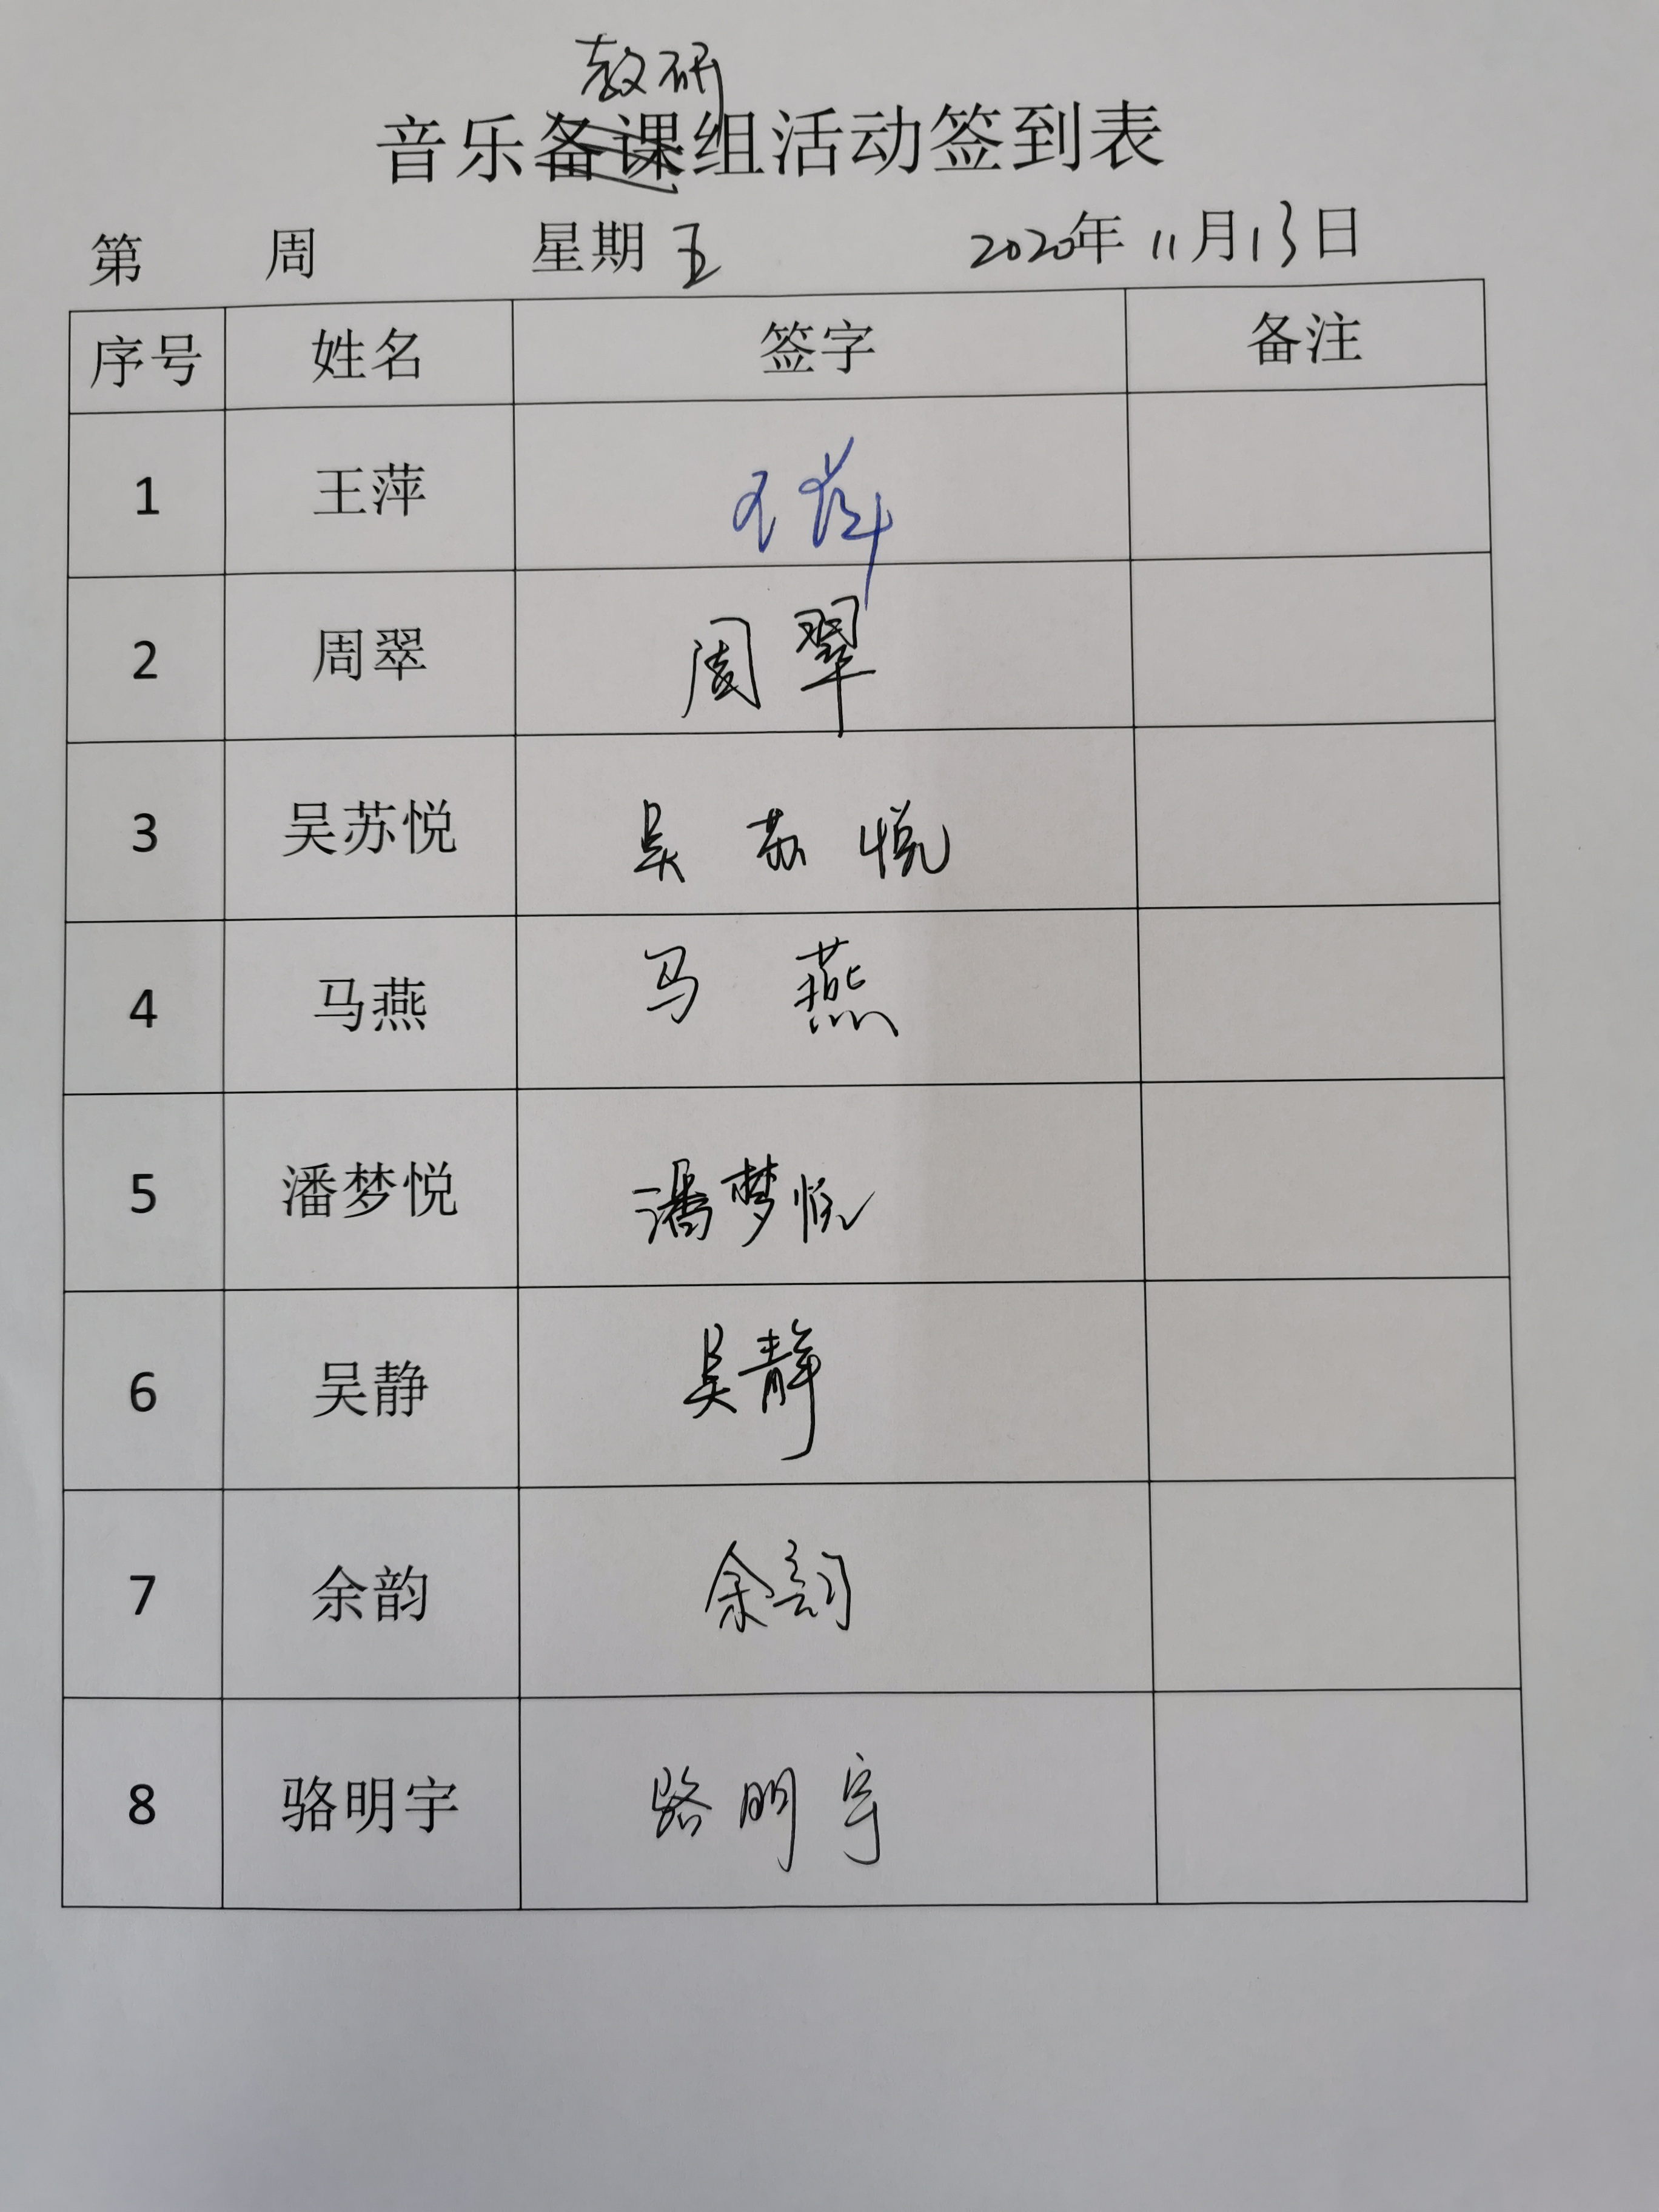 教研
音乐备课组活动签到表
第 周 星期五 2020年11月13日
序号 姓名 签字 备注
1 王萍 王萍
2 周翠 周翠
3 吴苏悦 吴苏悦
4 马燕 马燕
5 潘梦悦 潘梦悦
6 吴静 吴静
7 余韵 余韵
8 骆明宇 骆明宇